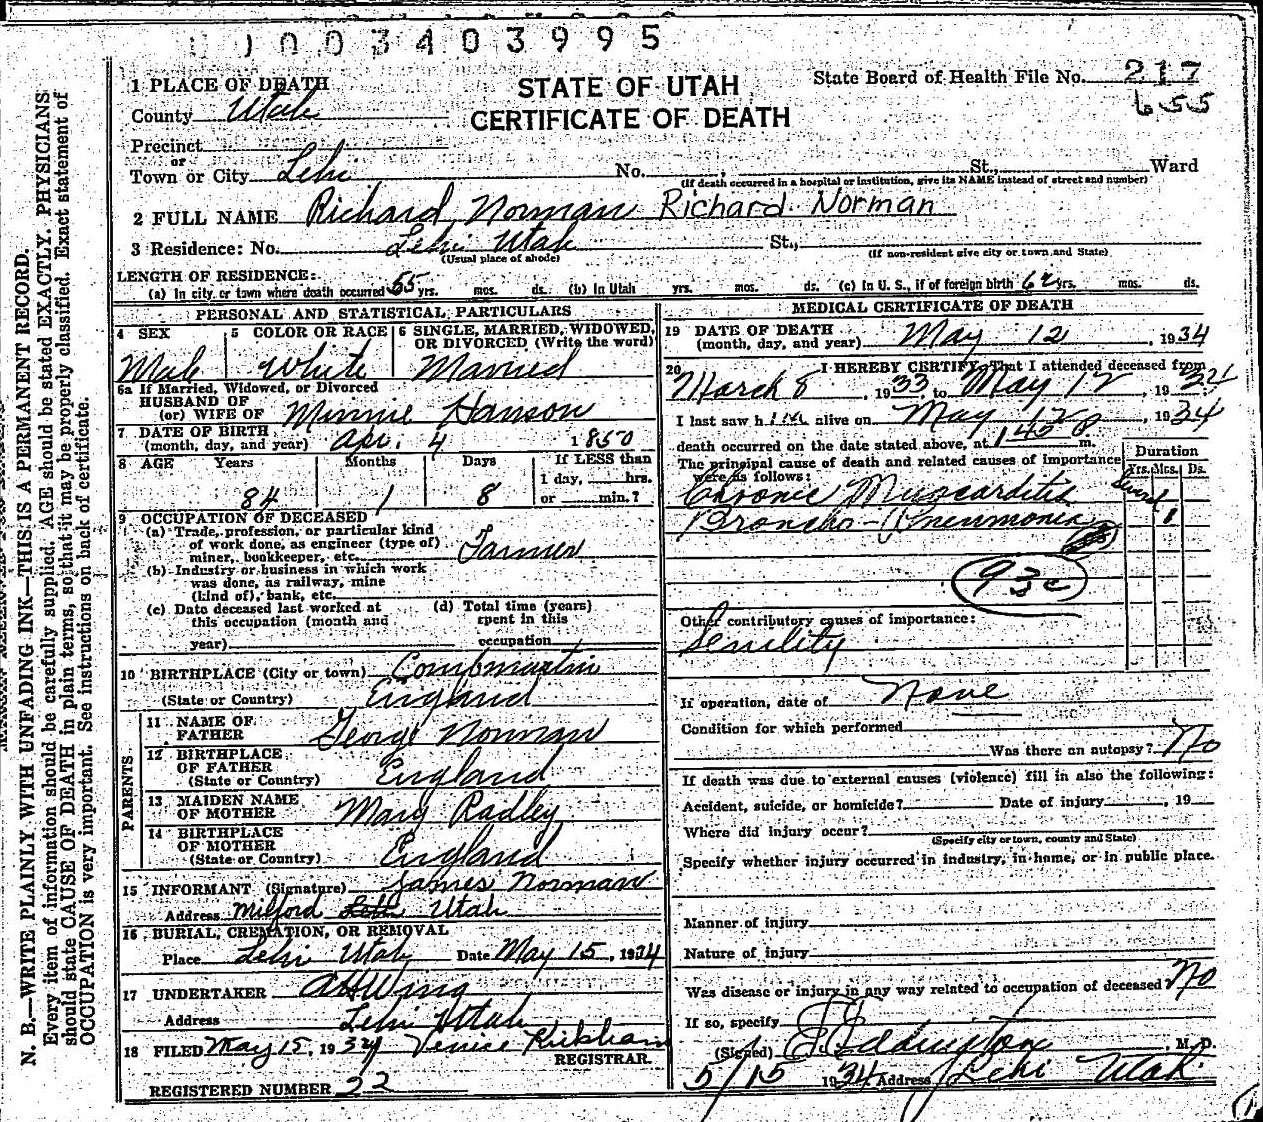 1003403995
STATE OF UTAH
CERTIFICATE OF DEATH
State Board of Health File No. 217
655
1 PLACE OF DEATH
County Utah
Precinct
or
Town or City Lehi No. St., Ward
(If death occurred in a hospital or institution, give its NAME instead of street and number)
2 FULL NAME Richard Norman Richard Norman
3 Residence: No. Lehi Utah St.,
(Usual place of abode) (If non-resident give city or town and State)
LENGTH OF RESIDENCE:
(a) In city or town where death occurred 55 yrs. mos. ds. (b) In Utah yrs. mos. ds. (c) In U. S., if of foreign birth 62 yrs. mos. ds.
PERSONAL AND STATISTICAL PARTICULARS
4 SEX 5 COLOR OR RACE 6 SINGLE, MARRIED, WIDOWED,
OR DIVORCED (Write the word)
Male White Married
6a If Married, Widowed, or Divorced
HUSBAND OF
(or) WIFE OF Minnie Hanson
7 DATE OF BIRTH
(month, day, and year) Apr. 4 1850
8 AGE Years Months Days If LESS than
1 day, hrs.
84 1 8 or min.?
9 OCCUPATION OF DECEASED
(a) Trade, profession, or particular kind
of work done, as engineer (type of)
miner, bookkeeper, etc. Farmer
(b) Industry or business in which work
was done, as railway, mine
(kind of), bank, etc.
(c) Date deceased last worked at (d) Total time (years)
this occupation (month and spent in this
year) occupation
10 BIRTHPLACE (City or town) Combmartin
(State or Country) England
PARENTS
11 NAME OF
FATHER George Norman
12 BIRTHPLACE
OF FATHER
(State or Country) England
13 MAIDEN NAME
OF MOTHER Mary Radley
14 BIRTHPLACE
OF MOTHER
(State or Country) England
15 INFORMANT (Signature) James Norman
Address Milford Lehi Utah
16 BURIAL, CREMATION, OR REMOVAL
Place Lehi Utah Date May 15, 1934
17 UNDERTAKER A H Wing
Address Lehi Utah
18 FILED May 15, 1934 Venice Kirkham
REGISTRAR.
REGISTERED NUMBER 22
MEDICAL CERTIFICATE OF DEATH
19 DATE OF DEATH
(month, day, and year) May 12, 1934
20 I HEREBY CERTIFY, That I attended deceased from
March 8, 1933, to May 12, 1934
I last saw him alive on May 12, 1934
death occurred on the date stated above, at 1 45 P m.
The principal cause of death and related causes of importance Duration
were as follows: Yrs. Mos. Ds.
Chronic Myocarditis Several
Broncho-Pneumonia
93c
Other contributory causes of importance:
Senility
If operation, date of None
Condition for which performed
Was there an autopsy? No
If death was due to external causes (violence) fill in also the following:
Accident, suicide, or homicide? Date of injury, 19
Where did injury occur?
(Specify city or town, county and State)
Specify whether injury occurred in industry, in home, or in public place.
Manner of injury
Nature of injury
Was disease or injury in any way related to occupation of deceased No
If so, specify
(Signed) Eddington, M.D.
5/15 1934 Address Lehi Utah
N. B.—WRITE PLAINLY WITH UNFADING INK—THIS IS A PERMANENT RECORD.
Every item of information should be carefully supplied. AGE should be stated EXACTLY. PHYSICIANS
should state CAUSE OF DEATH in plain terms, so that it may be properly classified. Exact statement of
OCCUPATION is very important. See instructions on back of certificate.